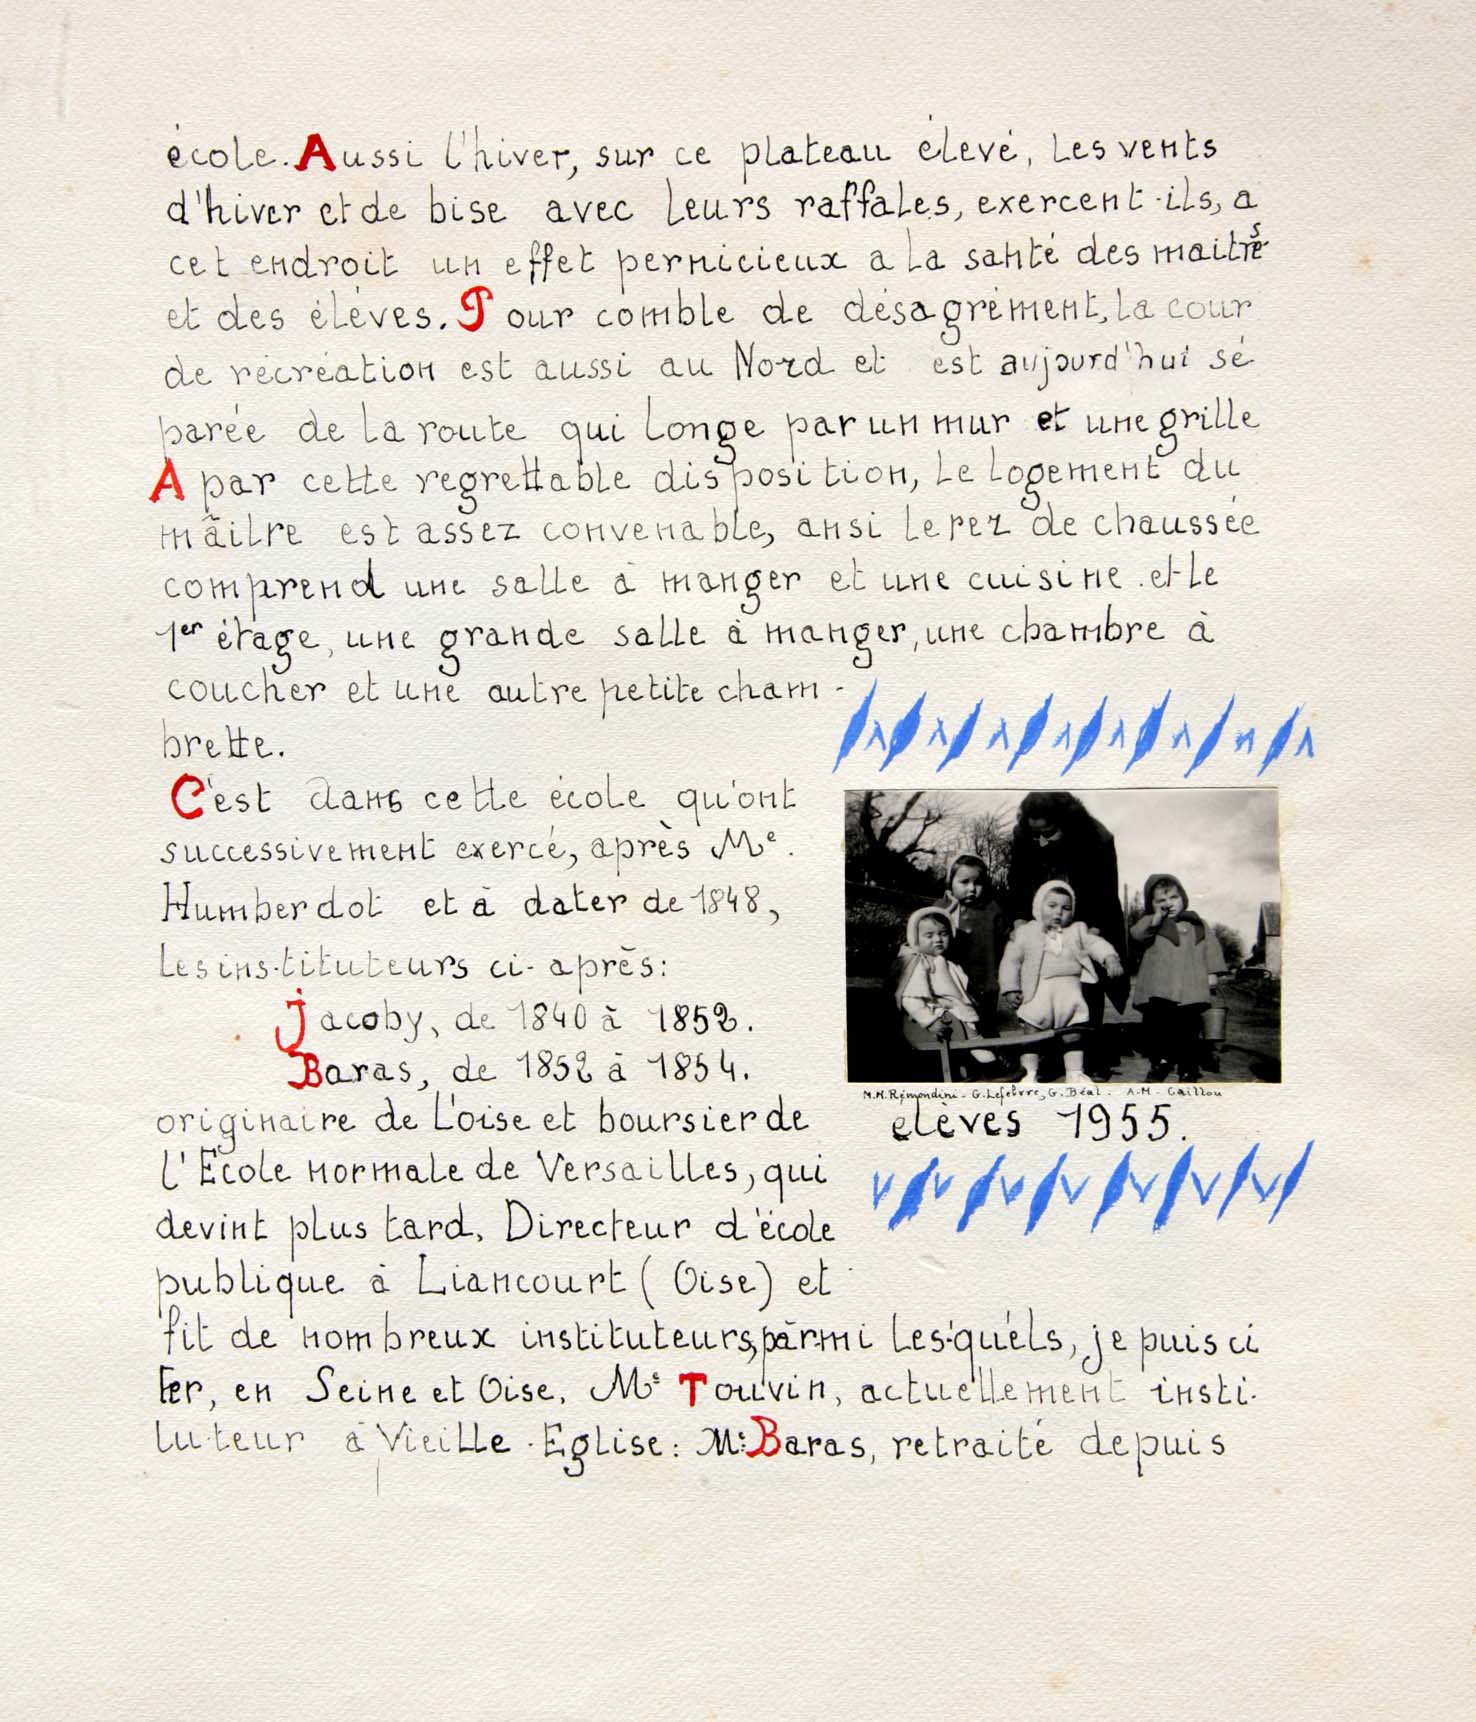 école. Aussi l'hiver, sur ce plateau élevé, les vents
d'hiver et de bise avec leurs raffales, exercent-ils, a
cet endroit un effet pernicieux a la santé des maitres
et des élèves. Pour comble de désagrément, la cour
de récréation est aussi au Nord et est aujourd'hui sé
parée de la route qui longe par un mur et une grille
A par cette regrettable disposition, le logement du
mâitre est assez convenable, ansi le rez de chaussée
comprend une salle à manger et une cuisine. et le
1er étage, une grande salle à manger, une chambre à
coucher et une autre petite cham-
brette.
C'est dans cette école qu'ont
successivement exercé, après Me.
Humberdot et à dater de 1848,
les ins-tituteurs ci-après:
Jacoby, de 1840 à 1852.
Baras, de 1852 à 1854.
originaire de L'oise et boursier de
l'École normale de Versailles, qui
devint plus tard, Directeur d'école
publique à Liancourt (Oise) et
fit de nombreux instituteurs, parmi les-quels, je puis ci
ter, en Seine et Oise, Ms Touvin, actuellement insti-
tu-teur à Vieille-Eglise: Ms Baras, retraité depuis
M.M. Rémondini - G. Lefebvre, G. Béal. A.M. Caillou
elèves 1955.